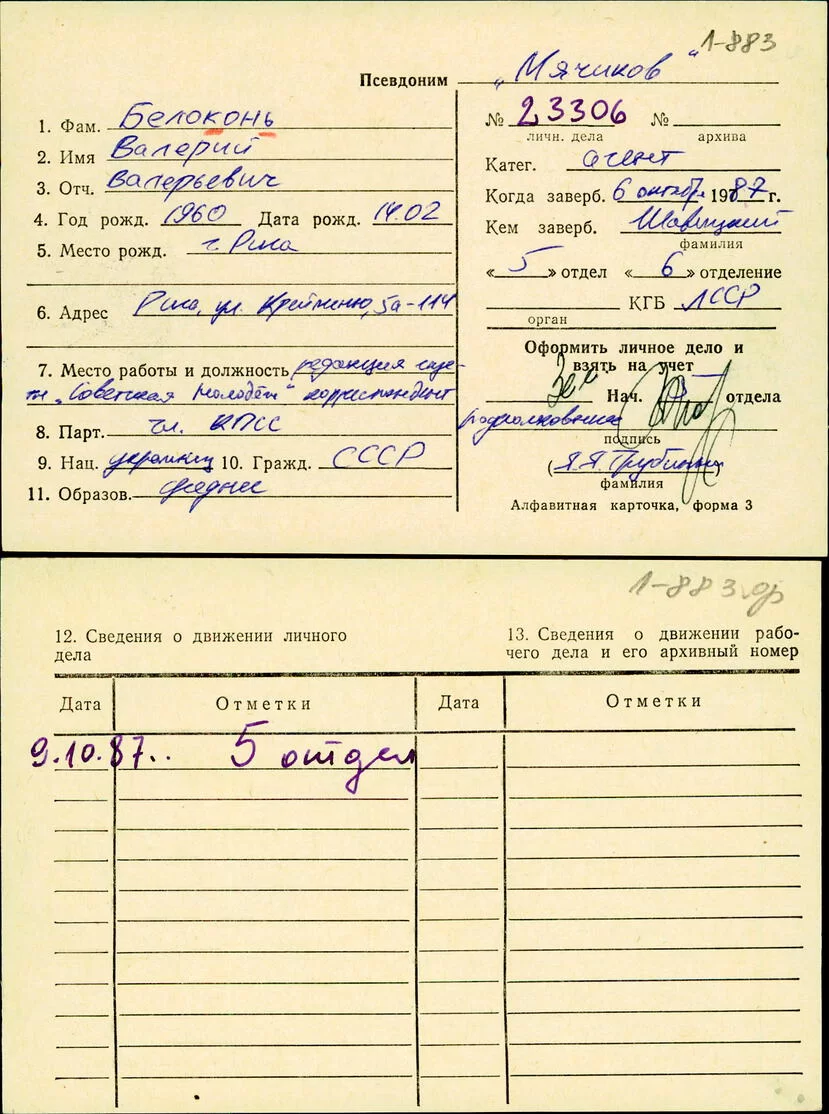 1-883
Псевдоним „Мячиков“
1. Фам. Белоконь
2. Имя Валерий
3. Отч. Валерьевич
4. Год рожд. 1960 Дата рожд. 14.02
5. Место рожд. г. Рига
6. Адрес Рига, ул. 5а-114
7. Место работы и должность редакция газе-
ты „Советская молодёжь“ корреспондент
8. Парт. чл. КПСС
9. Нац. украинец 10. Гражд. СССР
11. Образов. среднее
№ 23306 №
личн. дела архива
Катег. агент
Когда заверб. 6 октября 1987 г.
Кем заверб.
фамилия
« 5 » отдел « 6 » отделение
КГБ ЛССР
орган
Оформить личное дело и
взять на учет
Зам Нач. 5 отдела
подполковник
подпись
(
)
фамилия
Алфавитная карточка, форма 3
1-883
12. Сведения о движении личного
дела
13. Сведения о движении рабо-
чего дела и его архивный номер
Дата Отметки Дата Отметки
9.10.87.. 5 отдел